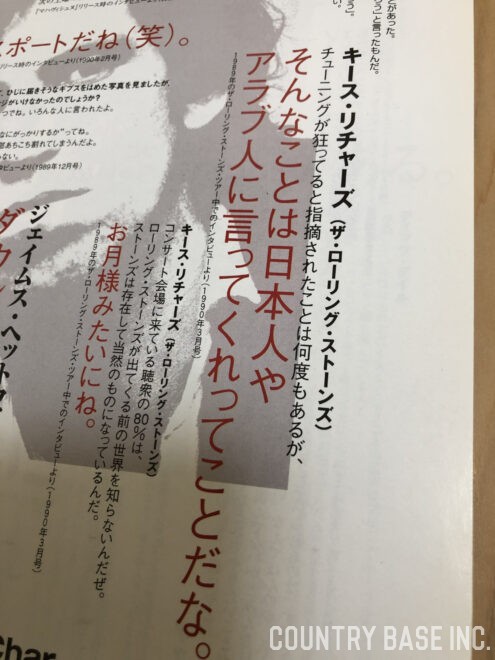 とがあった。
う」と言ったもんだ。
キース・リチャーズ(ザ・ローリング・ストーンズ)
チューニングが狂ってると指摘されたことは何度もあるが、
そんなことは日本人や
アラブ人に言ってくれってことだな。
1989年のザ・ローリング・ストーンズ・ツアー中でのインタビューより(1990年3月号)
キース・リチャーズ(ザ・ローリング・ストーンズ)
コンサート会場に来ている聴衆の80%は、
ローリング・ストーンズが出てくる前の世界を知らないんだぜ。
ストーンズは存在して当然のものになっているんだ。
お月様みたいにね。
1989年のザ・ローリング・ストーンズ・ツアー中でのインタビューより(1990年3月号)
『マハヴィシュヌ』リリース時のインタビュ
スポートだね(笑)。
リリース時のインタビューより(1990年2月号)
て、ひじに届きそうなギプスをはめた写真を見ましたが、
ージがいけなかったのでしょうか?
つでね。いろんな人に言われたよ。
なにがっかりするか"ってね。
部あちこち割れてしまうんだよ。
らない。
タビューより(1989年12月号)
ジェイムス・ヘット
ダウン
Char
COUNTRY BASE INC.